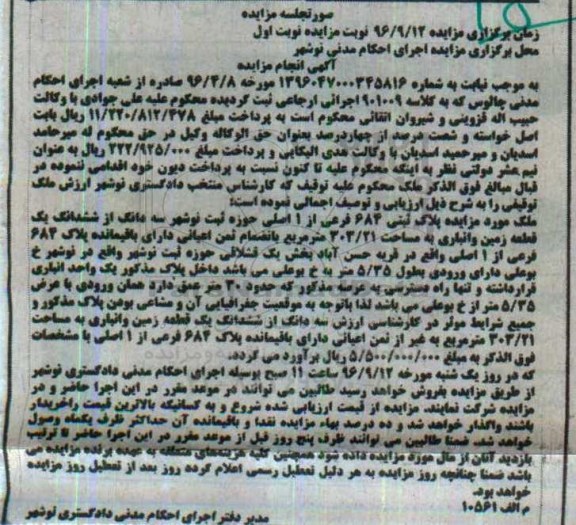 صورتجلسه مزایده
زمان برگزاری مزایده ۹۶/۹/۱۲ نوبت مزایده نوبت اول
محل برگزاری مزایده اجرای احکام مدنی نوشهر
آگهی انجام مزایده
به موجب نیابت به شماره ۱۳۹۶۰۴۷۰۰۰۳۴۵۸۱۶ مورخه ۹۶/۴/۸ صادره از شعبه اجرای احکام
مدنی چالوس که به کلاسه ۹۰۱۰۰۹ اجرائی ارجاعی ثبت گردیده محکوم علیه علی جوادی با وکالت
حبیب اله قزوینی و شیروان اتقائی محکوم است به پرداخت مبلغ ۱۱/۲۲۰/۸۱۲/۴۷۸ ریال بابت
اصل خواسته و شصت درصد از چهاردرصد بعنوان حق الوکاله وکیل در حق محکوم له میرحامد
اسدیان و میرحمید اسدیان با وکالت هدی الیکایی و پرداخت مبلغ ۲۲۲/۹۲۵/۰۰۰ ریال به عنوان
نیم عشر دولتی نظر به اینکه محکوم علیه تا کنون نسبت به پرداخت دیون خود اقدامی ننموده در
قبال مبالغ فوق الذکر ملک محکوم علیه توقیف که کارشناس منتخب دادگستری نوشهر ارزش ملک
توقیفی را به شرح ذیل ارزیابی و توصیف اجمالی نموده است؛
ملک مورد مزایده پلاک ثبتی ۶۸۴ فرعی از ۱ اصلی حوزه ثبت نوشهر سه دانگ از ششدانگ یک
قطعه زمین وانباری به مساحت ۳۰۳/۲۱ مترمربع بانضمام ثمن اعیانی دارای باقیمانده پلاک ۶۸۴
فرعی از ۱ اصلی واقع در قریه حسن آباد بخش یک قشلاقی حوزه ثبت نوشهر واقع در نوشهر خ
بوعلی دارای ورودی بطول ۵/۳۵ متر به خ بوعلی می باشد داخل پلاک مذکور یک واحد انباری
قرارداشته و تنها راه دسترسی به عرصه مذکور که حدود ۳۰ متر عمق دارد همان ورودی با عرض
۵/۳۵ متر از خ بوعلی می باشد لذا باتوجه به موقعیت جغرافیایی آن و مشاعی بودن پلاک مذکور و
جمیع شرایط موثر در کارشناسی ارزش سه دانگ از ششدانگ یک قطعه زمین وانباری به مساحت
۳۰۳/۲۱ مترمربع به غیر از ثمن اعیانی دارای باقیمانده پلاک ۶۸۴ فرعی از ۱ اصلی با مشخصات
فوق الذکر به مبلغ ۵/۵۰۰/۰۰۰/۰۰۰ ریال برآورد می گردد.
که در روز یک شنبه مورخه ۹۶/۹/۱۲ ساعت ۱۱ صبح بوسیله اجرای احکام مدنی دادگستری نوشهر
از طریق مزایده بفروش خواهد رسید طالبین می توانند در موعد مقرر در این اجرا حاضر و در
مزایده شرکت نمایند. مزایده از قیمت ارزیابی شده شروع و به کسانیکه بالاترین قیمت راخریدار
باشند واگذار خواهد شد و ده درصد بهاء مزایده نقدا و باقیمانده آن حداکثر ظرف یکماه وصول
خواهد شد. ضمنا طالبین می توانند ظرف پنج روز قبل از موعد مقرر در این اجرا حاضر تا ترتیب
بازدید آنان از مال مورد مزایده داده شود همچنین کلیه هزینه‌های متعلقه به عهده برنده مزایده می
باشد ضمنا چنانچه روز مزایده به هر دلیل تعطیل رسمی اعلام گردد روز بعد از تعطیل روز مزایده
خواهد بود.
م الف ۱۰۵۶۱
مدیر دفتر اجرای احکام مدنی دادگستری نوشهر